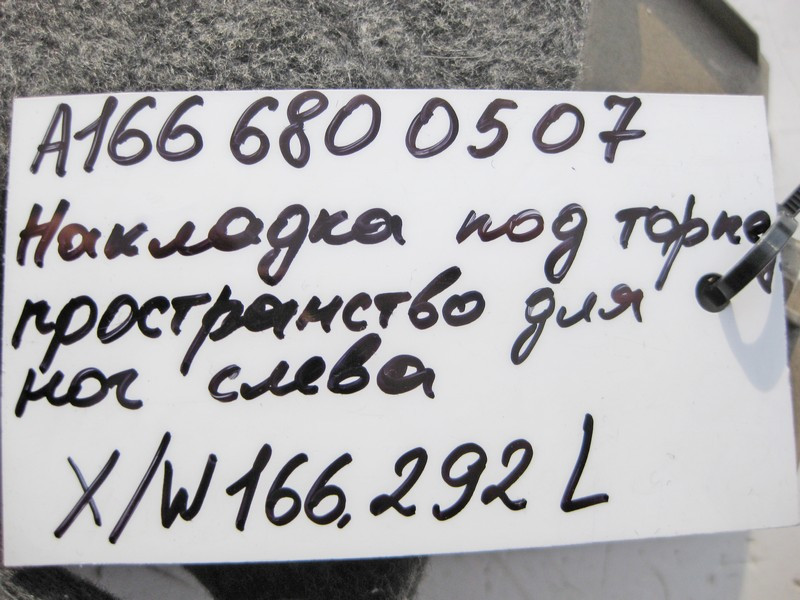 A166 680 0507
Накладка под торпе
пространство для
ног слева
X/W166.292 L